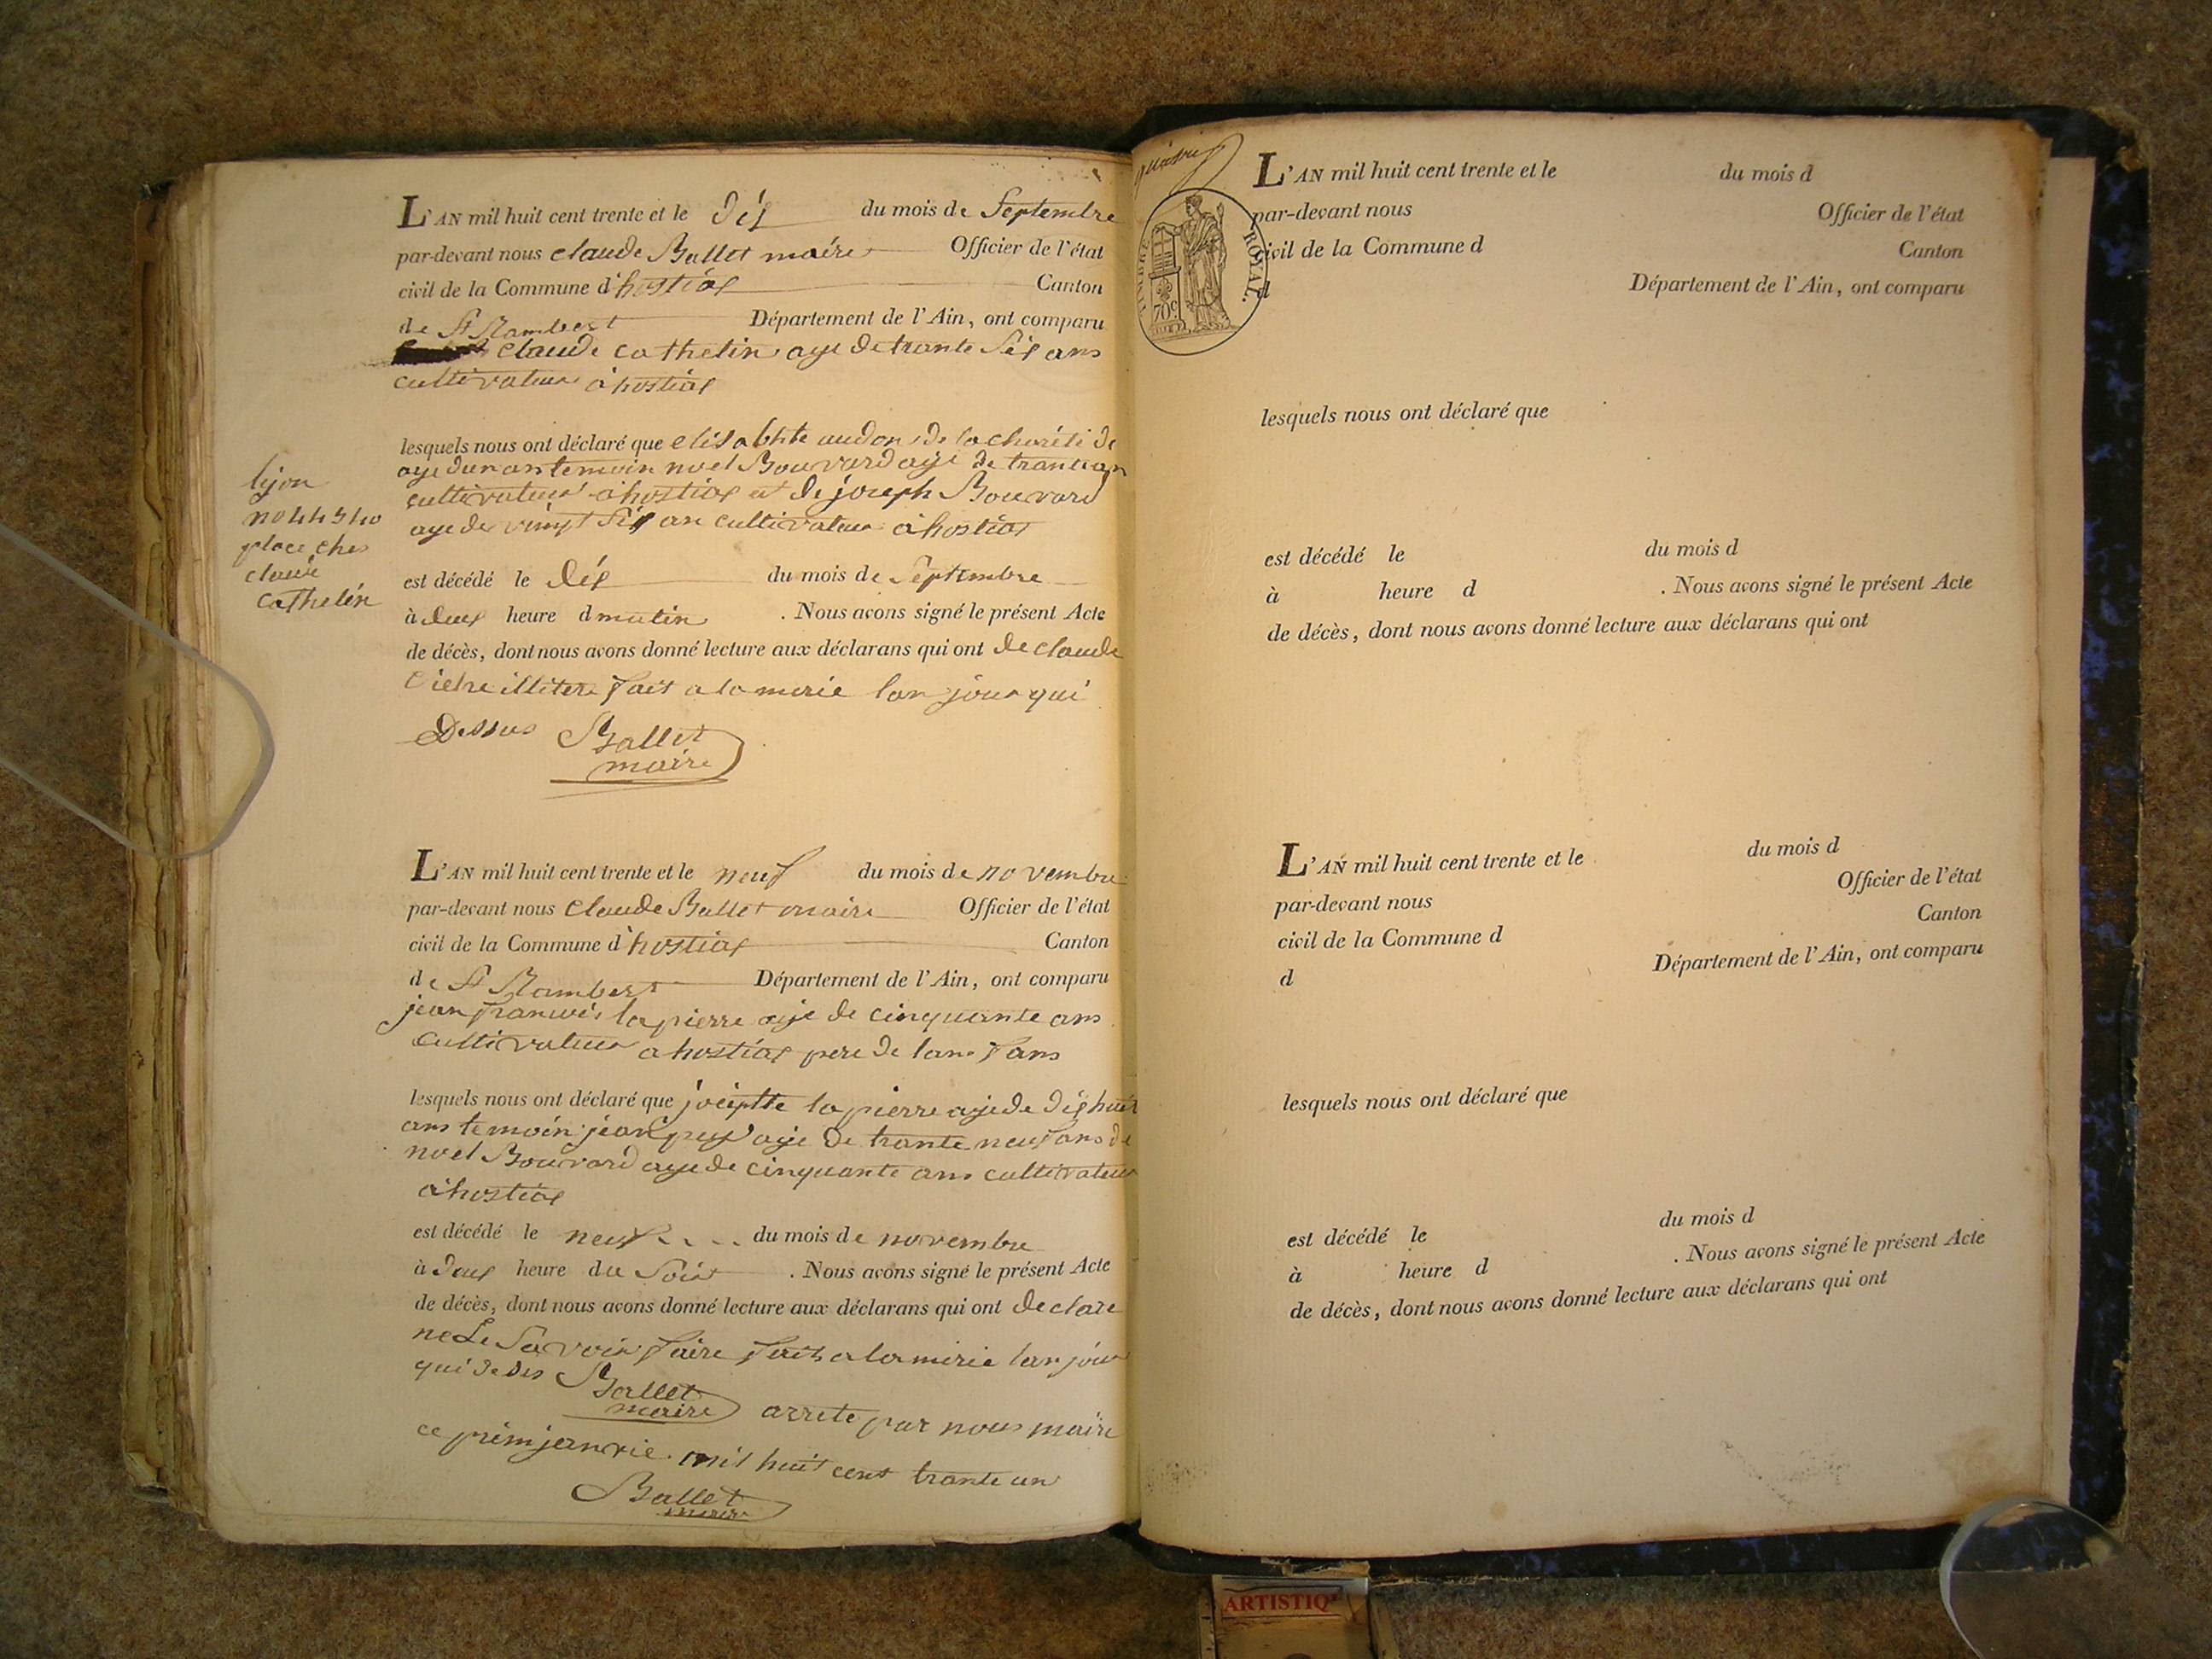 L'AN mil huit cent trente et le dix du mois de Septembre
par-devant nous claude Ballet maire Officier de l'état
civil de la Commune d'hostias Canton
de St Rambert Département de l'Ain, ont comparu
claude cathelin age de trante six ans
cultivateur à hostias
lesquels nous ont déclaré que de la charité de
age dun an temoin noel Bouvard age de
cultivateur à hostias et de joseph Bouvard
age de vingt six an cultivateur à hostias
lyon
place ches
claude
cathelin
est décédé le dix du mois de Septembre
à deux heure d matin . Nous avons signé le présent Acte
de décès, dont nous avons donné lecture aux déclarans qui ont de claude
illitere fait a la merie lan jour qui
Dessus Ballet
maire
L'AN mil huit cent trente et le neuf du mois de novembre
par-devant nous Claude Ballet maire Officier de l'état
civil de la Commune d'hostias Canton
de St Rambert Département de l'Ain, ont comparu
jean francois la pierre age de cinquante ans
cultivateur a hostias pere de
lesquels nous ont déclaré que la pierre age de dix huit
ans temoin jean age de trante neuf ans de
noel Bouvard age de cinquante ans cultivateur
à hostias
est décédé le neuf du mois de novembre
à deux heure du Soir . Nous avons signé le présent Acte
de décès, dont nous avons donné lecture aux déclarans qui ont declare
ne Le Savoir faire fait a la merie lan jour
qui Ballet
maire arrete par nous maire
ce janvie mil huit cent trante un
Ballet
maire
TIMBRE ROYAL.
70c
L'AN mil huit cent trente et le du mois d
par-devant nous Officier de l'état
civil de la Commune d Canton
d Département de l'Ain, ont comparu
lesquels nous ont déclaré que
est décédé le du mois d
à heure d . Nous avons signé le présent Acte
de décès, dont nous avons donné lecture aux déclarans qui ont
L'AN mil huit cent trente et le du mois d
par-devant nous Officier de l'état
civil de la Commune d Canton
d Département de l'Ain, ont comparu
lesquels nous ont déclaré que
est décédé le du mois d
à heure d . Nous avons signé le présent Acte
de décès, dont nous avons donné lecture aux déclarans qui ont
ARTISTIQ